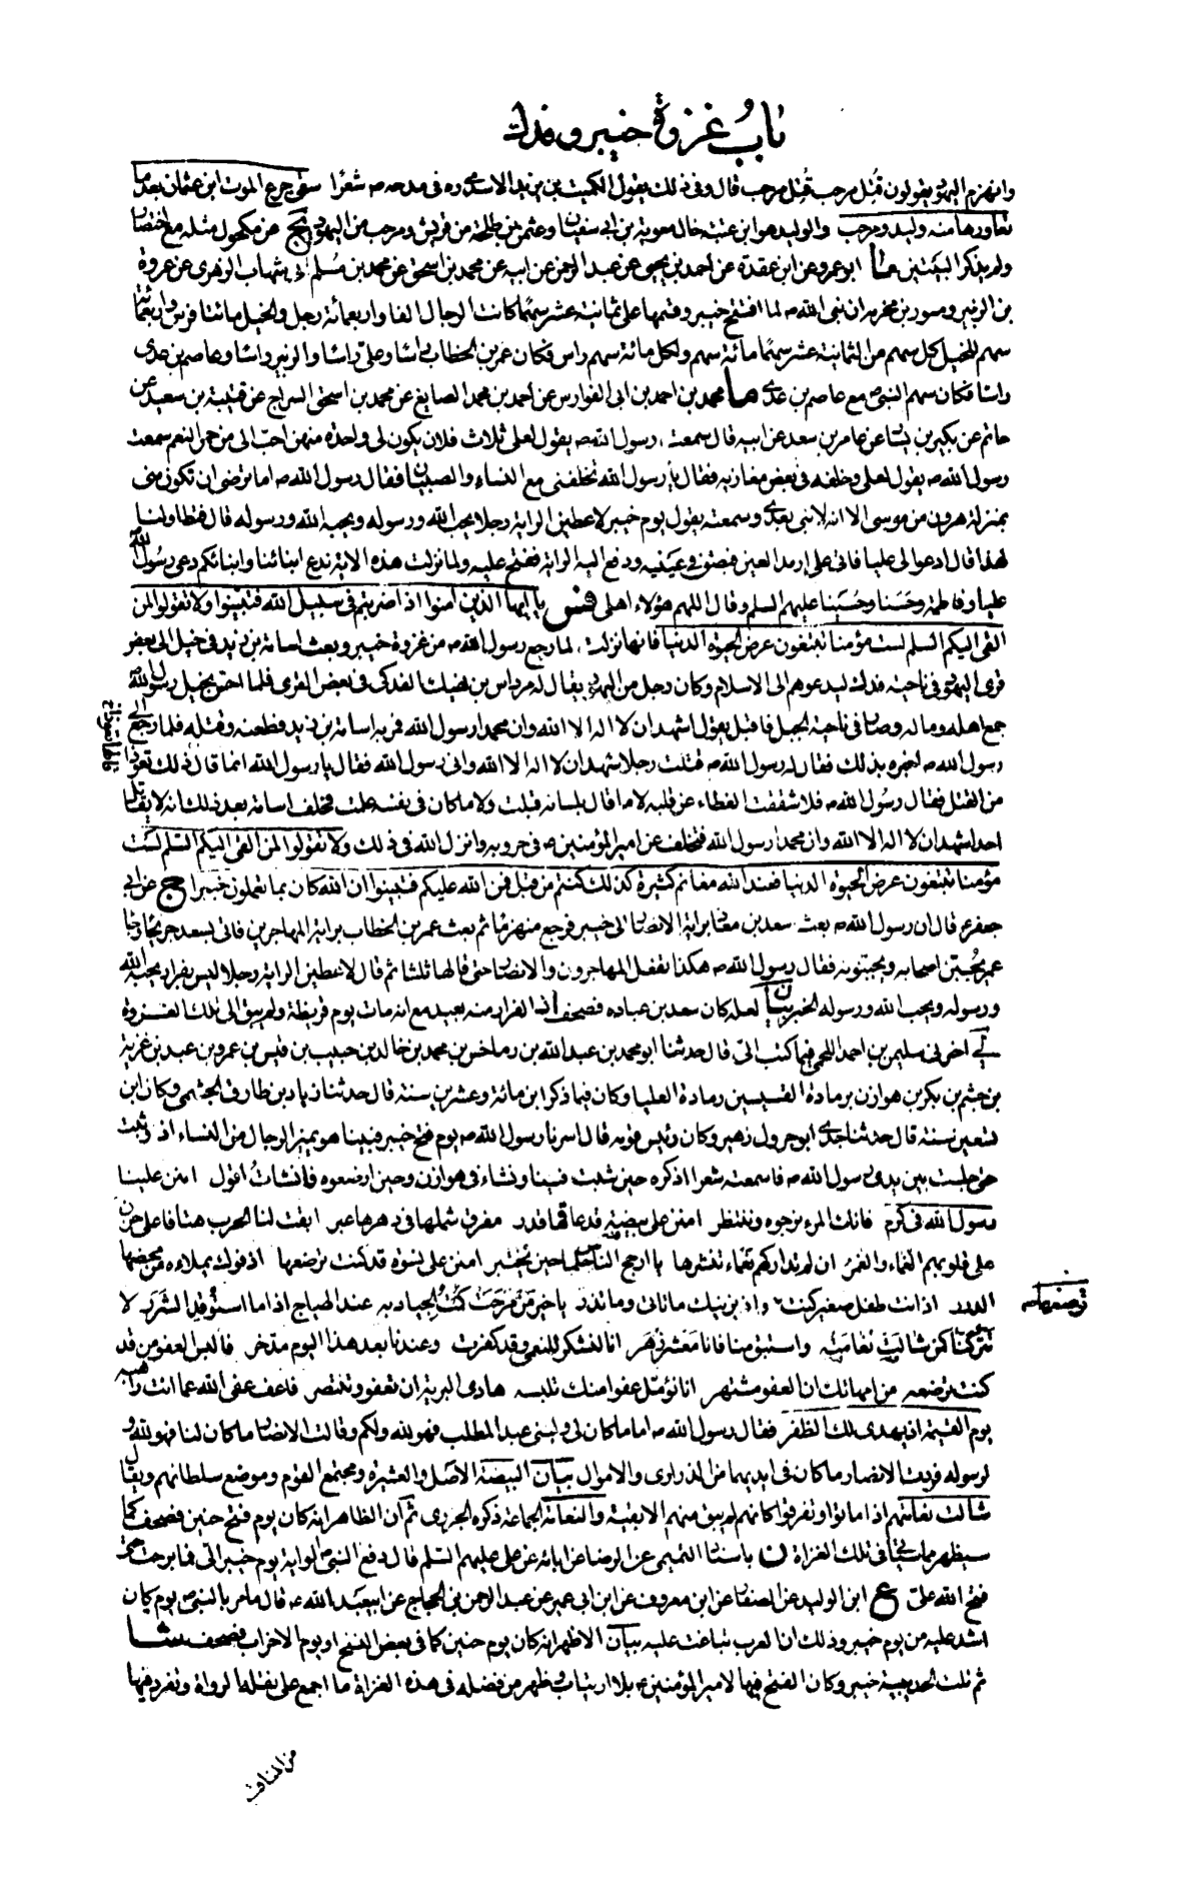 باب غزوة خيبر و فدك
وانهزم اليهود يقولون قُتل مرحب قُتل مرحب قال وفي ذلك يقول الكميت بن يزيد الاسدي ره في مدحه ص شعرًا سقى جرع الموت ابن عثمان بعد ما
تعاورها منه وليد ومرحب والوليد هو ابن عتبة خال معوية بن ابي سفيان وعثمن بن طلحة من قريش ومرحب من اليهود يج عن مكحول مثله مع اختصار
ولم يذكر البيتين ما ابو عمرو عن ابن عقدة عن احمد بن يحيى عن عبد الرحمن عن ابيه عن محمد بن اسحق عن محمد بن مسلم بن شهاب الزهري عن عروة
بن الزبير ومسور بن مخرمة ان نبي الله ص لما افتتح خيبر وقسمها على ثمانية عشر سهمًا كانت الرجال الفا واربعمائة رجل والخيل مائتا فرس واربعمائة
سهم للخيل كل سهم من الثمانية عشر سهمًا مائة سهم ولكل مائة سهم راس فكان عمر بن الخطاب راسًا وعلي راسًا والزبير راسًا وعاصم بن عدي
راسًا فكان سهم النبي ص مع عاصم بن عدي ما محمد بن احمد بن ابي الفوارس عن احمد بن محمد الصايغ عن محمد بن اسحق السراج عن قتيبة بن سعيد عن
حاتم عن بكير بن يسار عن عامر بن سعد عن ابيه قال سمعت رسول الله ص يقول لعلي ثلاث فلان يكون لي واحدة منهن احب الي من حمر النعم سمعت
رسول الله ص يقول لعلي وخلفه في بعض مغازيه فقال يا رسول الله تخلفني مع النساء والصبيان فقال رسول الله ص اما ترضى ان تكون مني
بمنزلة هرون من موسى الا انه لا نبي بعدي وسمعته يقول يوم خيبر لاعطين الراية رجلا يحب الله ورسوله ويحبه الله ورسوله قال فتطاولنا
لهذا قال ادعوا لي عليا فاتى علي ارمد العين فبصق في عينيه ودفع اليه الراية ففتح عليه ولما نزلت هذه الاية ندع ابنائنا وابنائكم دعى رسول الله
عليا وفاطمة وحَسَنا وحُسَينا عليهم السلم وقال اللهم هؤلاء اهلي فس يا ايها الذين امنوا اذا ضربتم في سبيل الله فتبينوا ولا تقولوا لمن
القى اليكم السلم لست مؤمنا تبتغون عرض الحيوة الدنيا فانها نزلت لما رجع رسول الله ص من غزوة خيبر وبعث اسامة بن زيد في خيل الى بعض
قرى اليهود في ناحية فدك ليدعوهم الى الاسلام وكان رجل من اليهود يقال له مرداس بن نهيك الفدكي في بعض القرى فلما احق بخيل رسول الله
جمع اهله وماله وصار في ناحية الجبل فاقبل يقول اشهد ان لا اله الا الله وان محمدا رسول الله فمر به اسامة بن زيد فطعنه وقتله فلما رجع الى
رسول الله ص اخبره بذلك فقال له رسول الله ص قتلت رجلا شهد ان لا اله الا الله واني رسول الله فقال يا رسول الله انما قال ذلك تعوذا
من القتل فقال رسول الله ص فلا شققت الغطاء عن قلبه لا ما قال بلسانه قبلت ولا ما كان في نفسه علمت فحلف اسامة بعد ذلك انه لا يقاتل
احدا شهد ان لا اله الا الله وان محمدا رسول الله فتخلف عن امير المؤمنين ص في حروبه وانزل الله في ذلك ولا تقولوا لمن القى اليكم السلم لست
مؤمنا تبتغون عرض الحيوة الدنيا فعند الله مغانم كثيرة كذلك كنتم من قبل فمن الله عليكم فتبينوا ان الله كان بما تعملون خبيرا ج عن ابي
جعفر ع قال ان رسول الله ص بعث سعد بن معاذ براية الانصار الى خيبر فرجع منهزمًا ثم بعث عمر بن الخطاب براية المهاجرين فاتي بسعد جريحًا وجاء
عمر يُجبّن اصحابه ويجبنونه فقال رسول الله ص هكذا يفعل المهاجرون والانصار حتى قالها ثلثا ثم قال لاعطين الراية رجلا ليس بفرار يحبه الله
ورسوله ويحب الله ورسوله الخبر بيان لعله كان سعد بن عبادة فصحف اذ الفرار منه بعيد مع انه مات يوم قريظة ولم يبق الى تلك الغزوة
كي اخبرني سليمن بن احمد اللخمي فيما كتب الي قال حدثنا ابو محمد بن عبد الله بن رماحس بن محمد بن خالد بن حبيب بن قيس بن عمرو بن عبد بن غزية
بن جشم بن بكر بن هوازن برمادة القليسين رمادة العليا وكان فيما ذكر ابن مائة وعشرين سنة قال حدثنا زياد بن طارق الجشمي وكان ابن
تسعين سنة قال حدثنا جدي ابو جرول زهير وكان رئيس قومه قال اسرنا رسول الله ص يوم فتح خيبر فبينا هو يميز الرجال من النساء اذ وثبت
حتى جلست بين يدي رسول الله ص فاسمعته شعرا اذكره حين شب فينا ونشاء في هوازن وحين ارضعوه فانشأتُ اقول امنن علينا
رسول الله في كرم فانك المرء نرجوه وننتظر امنن على بيضة قد عاقها قدر مفرق شملها في دهرها عبر ابقت لنا الحرب هتافا على حزن
على قلوبهم الغماء والغمر ان لم تداركهم نعماء تنشرها يا ارجح الناس حلما حين يختبر امنن على نسوة قد كنت ترضعها اذ فوك يملاءه من محضها
الدرر اذ انت طفل صغير كنت ترضعها واذ يزينك ما تاتي وما تذر يا خير من مرحت كُمْتُ الجياد به عند الهياج اذا ما استوقد الشرر لا
تتركنا كمن شالت نعامته واستبق منا فانا معشر زهر انا لنشكر للنعمى وقد كفرت وعندنا بعد هذا اليوم مدخر فالبس العفو من قد
كنت ترضعه من امهاتك ان العفو مشتهر انا نؤمل عفوا منك تلبسه هادي البرية ان تعفو وتنتصر فاعف عفى الله عما انت راهبه
يوم القيمة اذ يهدى لك الظفر فقال رسول الله ص اما ما كان لي ولبني عبد المطلب فهو لله ولكم وقالت الانصار ما كان لنا فهو لله و
لرسوله فردت الانصار ما كان في ايديها من الذراري والاموال بيان البيضة الاصل والعشيرة ومجتمع القوم وموضع سلطانهم ويقال
شالت نعامتهم اذا ماتوا وتفرقوا كانهم لم يبق منهم الا بقية والنعامة الجماعة ذكره الجزري ثم ان الظاهر انه كان يوم فتح حنين فصحف كما
سيظهر مما سيجئ في تلك الغزاة ن باسناد التميمي عن الرضا عن ابائه عن علي عليهم السلم قال دفع النبي ص الراية يوم خيبر الي فما برحت حتى
فتح الله علي ع ابن الوليد عن الصفار عن ابن معروف عن ابن ابي عمير عن عبد الرحمن بن الحجاج عن ابي عبد الله ع قال ما مر بالنبي ص يوم كان
اشد عليه من يوم خيبر وذلك ان العرب تباغت عليه بيان الاظهر انه كان يوم حنين كما في بعض النسخ او يوم الاحزاب فصحف شا
ثم تلت الحديبية خيبر وكان الفتح فيها لامير المؤمنين ص بلا ارتياب وظهر من فضله في هذه الغزاة ما اجمع على نقله الرواة وتفرد فيها
من المناقب